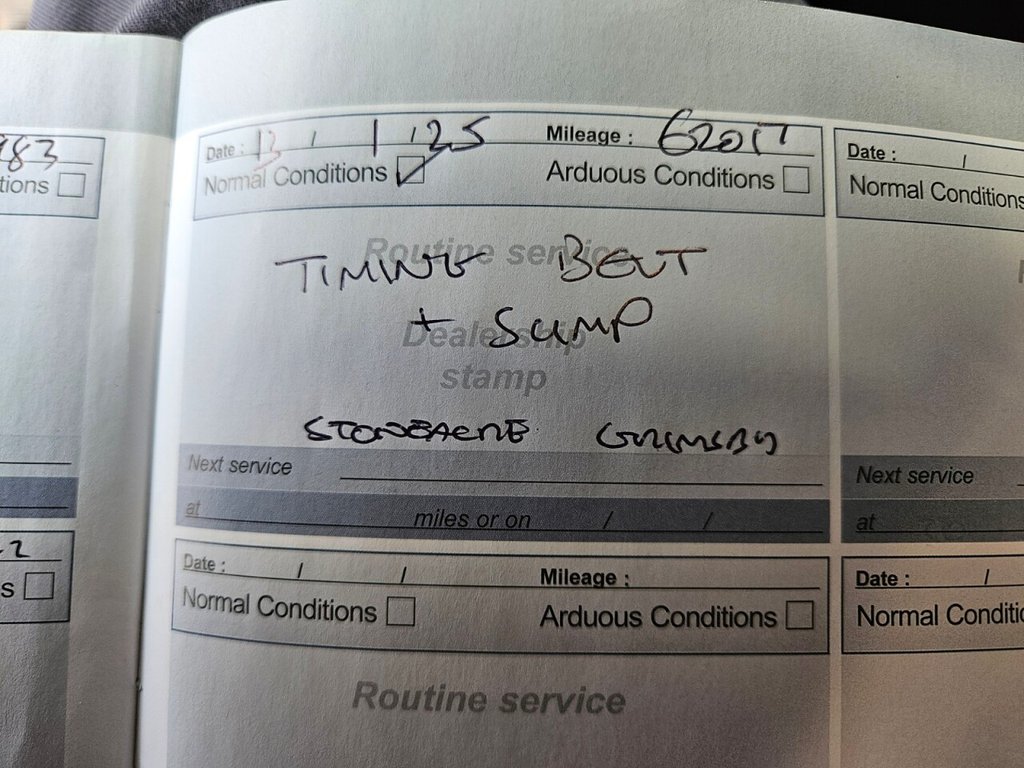 983
tions
Date : 13 / 1 / 25 Mileage : 62017
Normal Conditions Arduous Conditions
Routine service
TIMING BELT
+ SUMP
Dealership
stamp
STONEACRE GRIMSBY
Next service
at miles or on / /
Date : / / Mileage :
Normal Conditions Arduous Conditions
Routine service
2
s
Date : /
Normal Conditions
Next service
at
Date : /
Normal Conditio